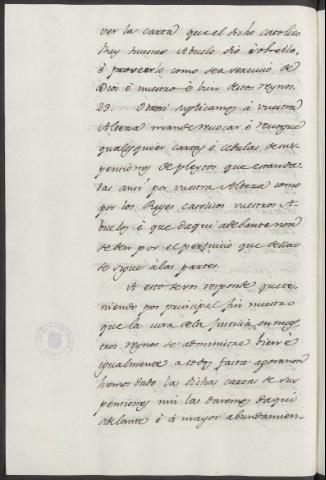 ver la carta que el dicho catolico
Rey nuestro Abuelo dio sobrello,
é proveerlo como sea servicio de
Dios é nuestro é bien destos reynos.
23. Otrosi suplicamos á vuestra
Alteza mande revocar é revoque
qualesquier cartas é cedulas de sus-
pensiones de pleytos que estan da-
das ansi por vuestra Alteza como
por los Reyes catolicos vuestros A-
buelos, é que daqui adelante non
se den por el perjuicio que dellas
se sigue á las partes.
A esto se vos responde que te-
niendo por principal fin nuestro
que la cura de la Justicia en nues-
tros reynos se administre bien é
igualmente a todos fasta agora non
havemos dado las dichas cartas de sus-
pensiones nin las daremos daqui
adelante é á mayor abundamien-